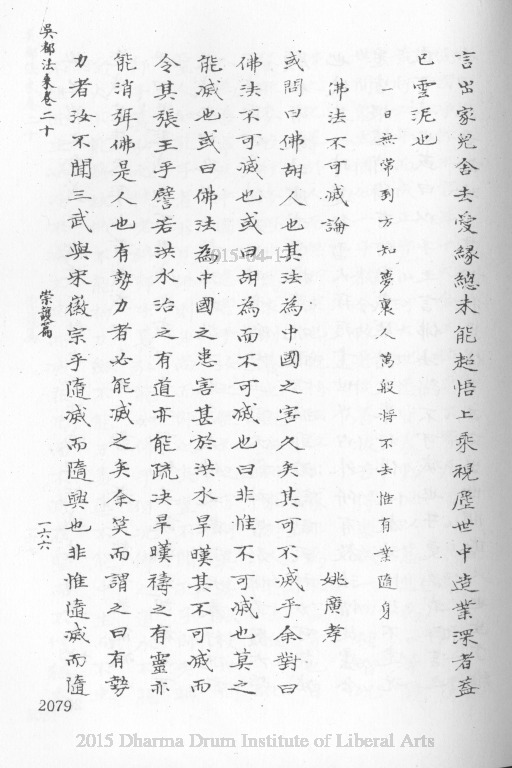 言出家兒舍去愛緣總未能超悟上乘視塵世中造業深者蓋
已雲泥也
一日無常到方知夢裏人萬般將不去惟有業隨身
佛法不可滅論
姚廣孝
或問曰佛胡人也其法為中國之害久矣其可不滅乎余對曰
佛法不可滅也或曰胡為而不可滅也曰非惟不可滅也莫之
能滅也或曰佛法為中國之患害甚於洪水旱暵其不可滅而
令其張王乎譬若洪水治之有道亦能疏決旱暵禱之有靈亦
能消弭佛是人也有勢力者必能滅之矣余笑而謂之曰有勢
力者汝不聞三武與宋徽宗乎隨滅而隨興也非惟隨滅而隨
吳都法乘卷二十
崇護篇
一六六
2079
2015 Dharma Drum Institute of Liberal Arts